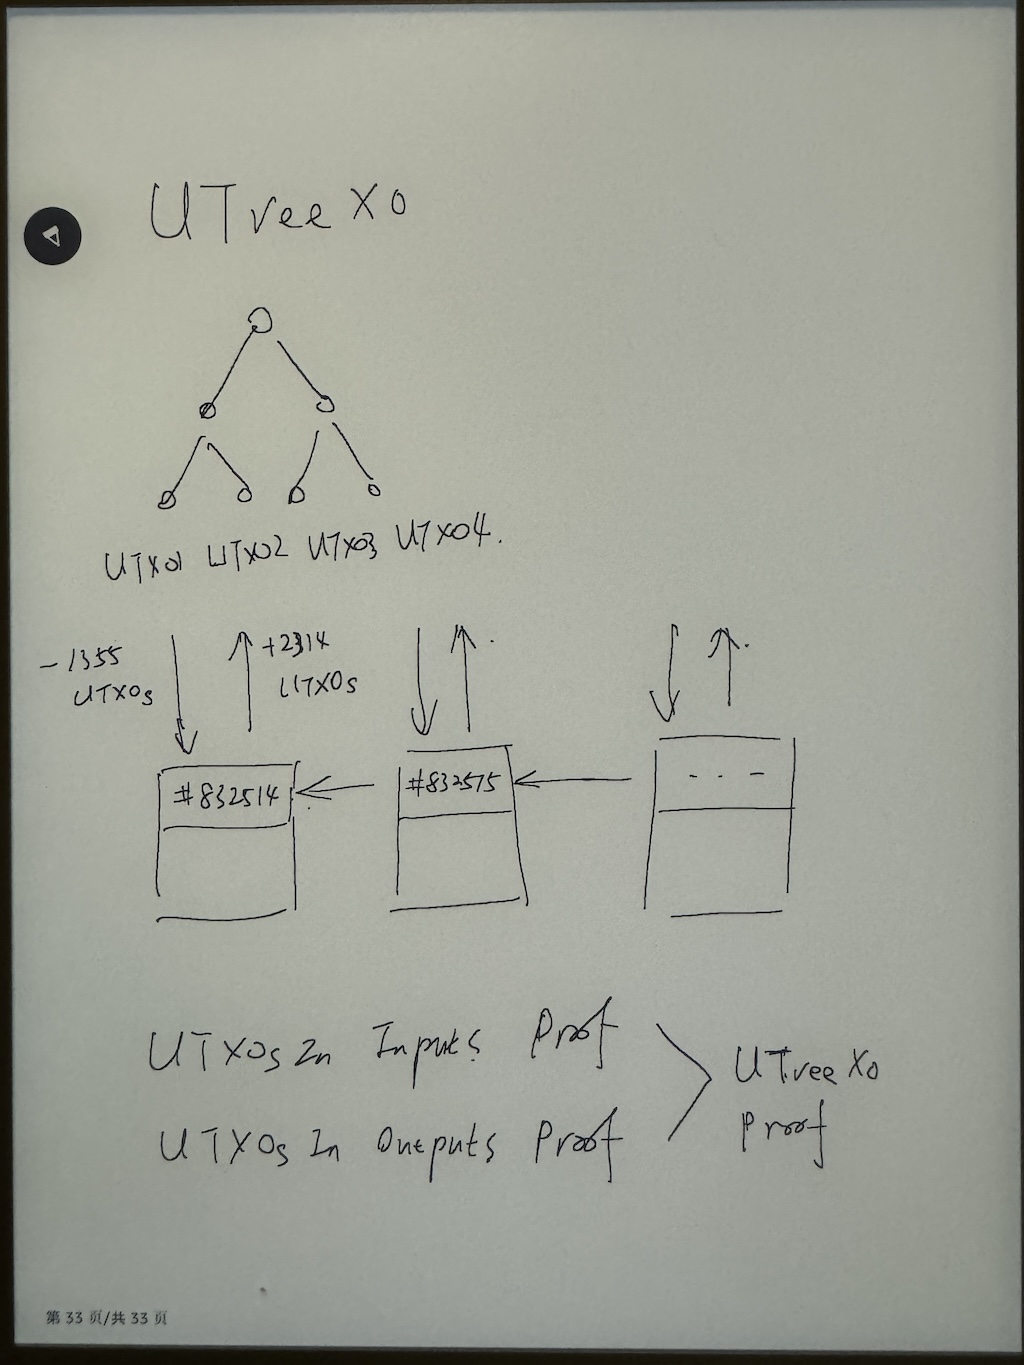 UTreeXO
UTXO1 UTXO2 UTXO3 UTXO4.
-1355 UTXOs
+2314 UTXOs
#832514
#832515
- - -
UTXOs In Inputs Proof
UTXOs In Outputs Proof
UTreeXO Proof
第 33 页/共 33 页